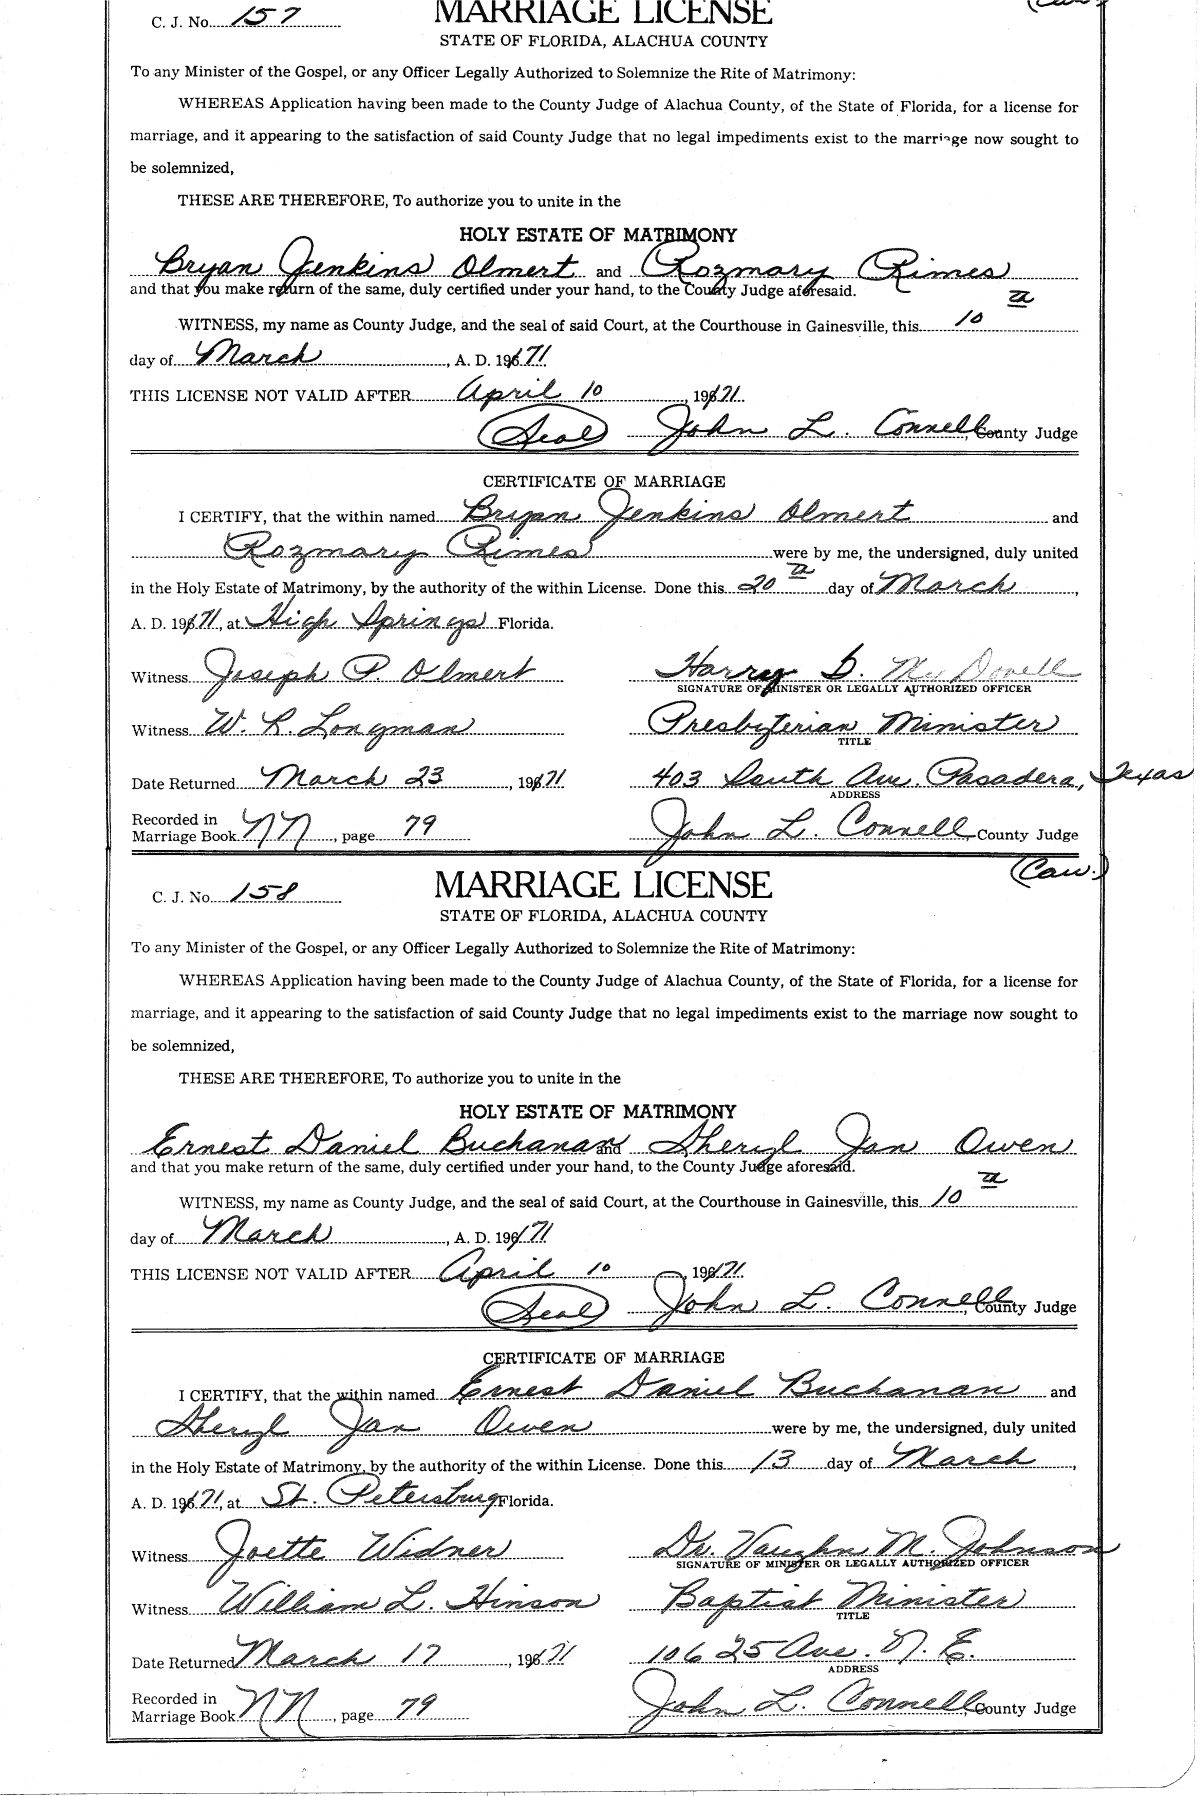 C. J. No. 157
MARRIAGE LICENSE
STATE OF FLORIDA, ALACHUA COUNTY
To any Minister of the Gospel, or any Officer Legally Authorized to Solemnize the Rite of Matrimony:
WHEREAS Application having been made to the County Judge of Alachua County, of the State of Florida, for a license for
marriage, and it appearing to the satisfaction of said County Judge that no legal impediments exist to the marriage now sought to
be solemnized,
THESE ARE THEREFORE, To authorize you to unite in the
HOLY ESTATE OF MATRIMONY
Bryan Jenkins Olmert and Rozmary Rimes
and that you make return of the same, duly certified under your hand, to the County Judge aforesaid.
WITNESS, my name as County Judge, and the seal of said Court, at the Courthouse in Gainesville, this 10 th
day of March, A. D. 1971
THIS LICENSE NOT VALID AFTER April 10, 1971
Seal John L. Connell, County Judge
CERTIFICATE OF MARRIAGE
I CERTIFY, that the within named Bryan Jenkins Olmert and
Rozmary Rimes were by me, the undersigned, duly united
in the Holy Estate of Matrimony, by the authority of the within License. Done this 20 th day of March,
A. D. 1971, at High Springs Florida.
Witness Joseph P. Olmert Harrey D. McDonell
SIGNATURE OF MINISTER OR LEGALLY AUTHORIZED OFFICER
Witness W. R. Longman Presbyterian Minister
TITLE
Date Returned March 23, 1971 403 South Ave. Pasadera, Texas
ADDRESS
Recorded in
Marriage Book NN, page 79 John L. Connell County Judge
(Caw.)
C. J. No. 158
MARRIAGE LICENSE
STATE OF FLORIDA, ALACHUA COUNTY
To any Minister of the Gospel, or any Officer Legally Authorized to Solemnize the Rite of Matrimony:
WHEREAS Application having been made to the County Judge of Alachua County, of the State of Florida, for a license for
marriage, and it appearing to the satisfaction of said County Judge that no legal impediments exist to the marriage now sought to
be solemnized,
THESE ARE THEREFORE, To authorize you to unite in the
HOLY ESTATE OF MATRIMONY
Ernest Daniel Buchanan and Sheryl Jan Owen
and that you make return of the same, duly certified under your hand, to the County Judge aforesaid.
WITNESS, my name as County Judge, and the seal of said Court, at the Courthouse in Gainesville, this 10 th
day of March, A. D. 1971
THIS LICENSE NOT VALID AFTER April 10, 1971
Seal John L. Connell, County Judge
CERTIFICATE OF MARRIAGE
I CERTIFY, that the within named Ernest Daniel Buchanan and
Sheryl Jan Owen were by me, the undersigned, duly united
in the Holy Estate of Matrimony, by the authority of the within License. Done this 13 day of March,
A. D. 1971, at St. Petersburg Florida.
Witness Joette Widner Dr. Vaughn M. Johnson
SIGNATURE OF MINISTER OR LEGALLY AUTHORIZED OFFICER
Witness William L. Hinson Baptist Minister
TITLE
Date Returned March 17, 1971 106 25 Ave. N. E.
ADDRESS
Recorded in
Marriage Book NN, page 79 John L. Connell County Judge